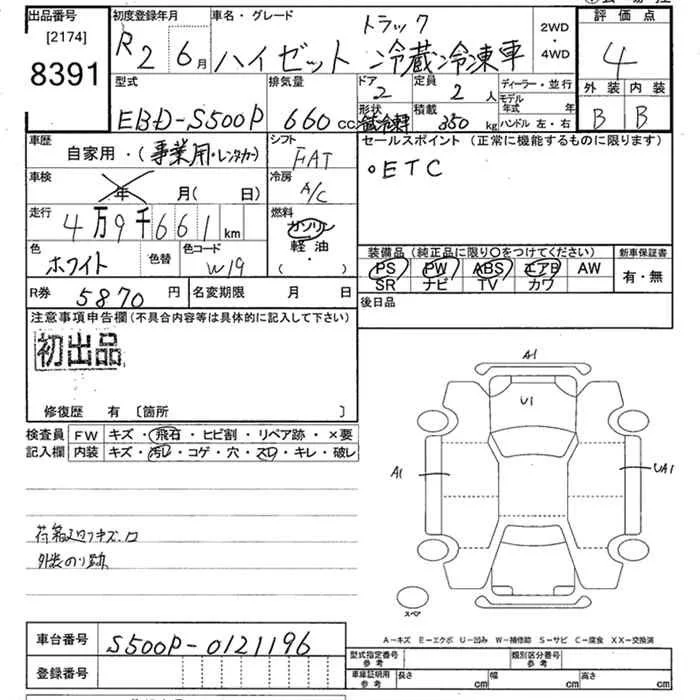 出品番号
[2174]
8391
初度登録年月
R2 6月
車名・グレード
トラック
ハイゼット 冷蔵冷凍車
2WD
・
4WD
評価点
4
外装 内装
B B
型式
EBD-S500P
排気量
660 CC
ドア
2
定員
2人
形状
積載
350 kg
ディーラー・並行
モデル年式 年
ハンドル 左・右
車歴
自家用・(事業用・レンタカー)
シフト
FAT
車検
年 月(日)
冷房
A/C
走行
4万9千661km
燃料
ガソリン
軽油
( ・ )
色
ホワイト
色替
色コード
W19
R券 5870円
名変期限 月 日
セールスポイント (正常に機能するものに限ります)
・ETC
装備品 (純正品に限り〇をつけてください)
PS PW ABS エアB AW
SR ナビ TV カワ
新車保証書
有・無
後日品
注意事項申告欄(不具合内容等は具体的に記入して下さい)
初出品
修復歴 有 〔箇所 〕
検査員 FW キズ・飛石・ヒビ割・リペア跡・×要
記入欄 内装 キズ・汚レ・コゲ・穴・スレ・キレ・破レ
外装のり跡
A1
U1
A1
UA1
スペア
A−キズ E−エクボ U−凹み W−補修跡 S−サビ C−腐食 XX−交換済
車台番号 S500P-0121196
登録番号
型式指定番号 参考
類別区分番号 参考
車庫証明用 参考
長さ cm
幅 cm
高さ cm